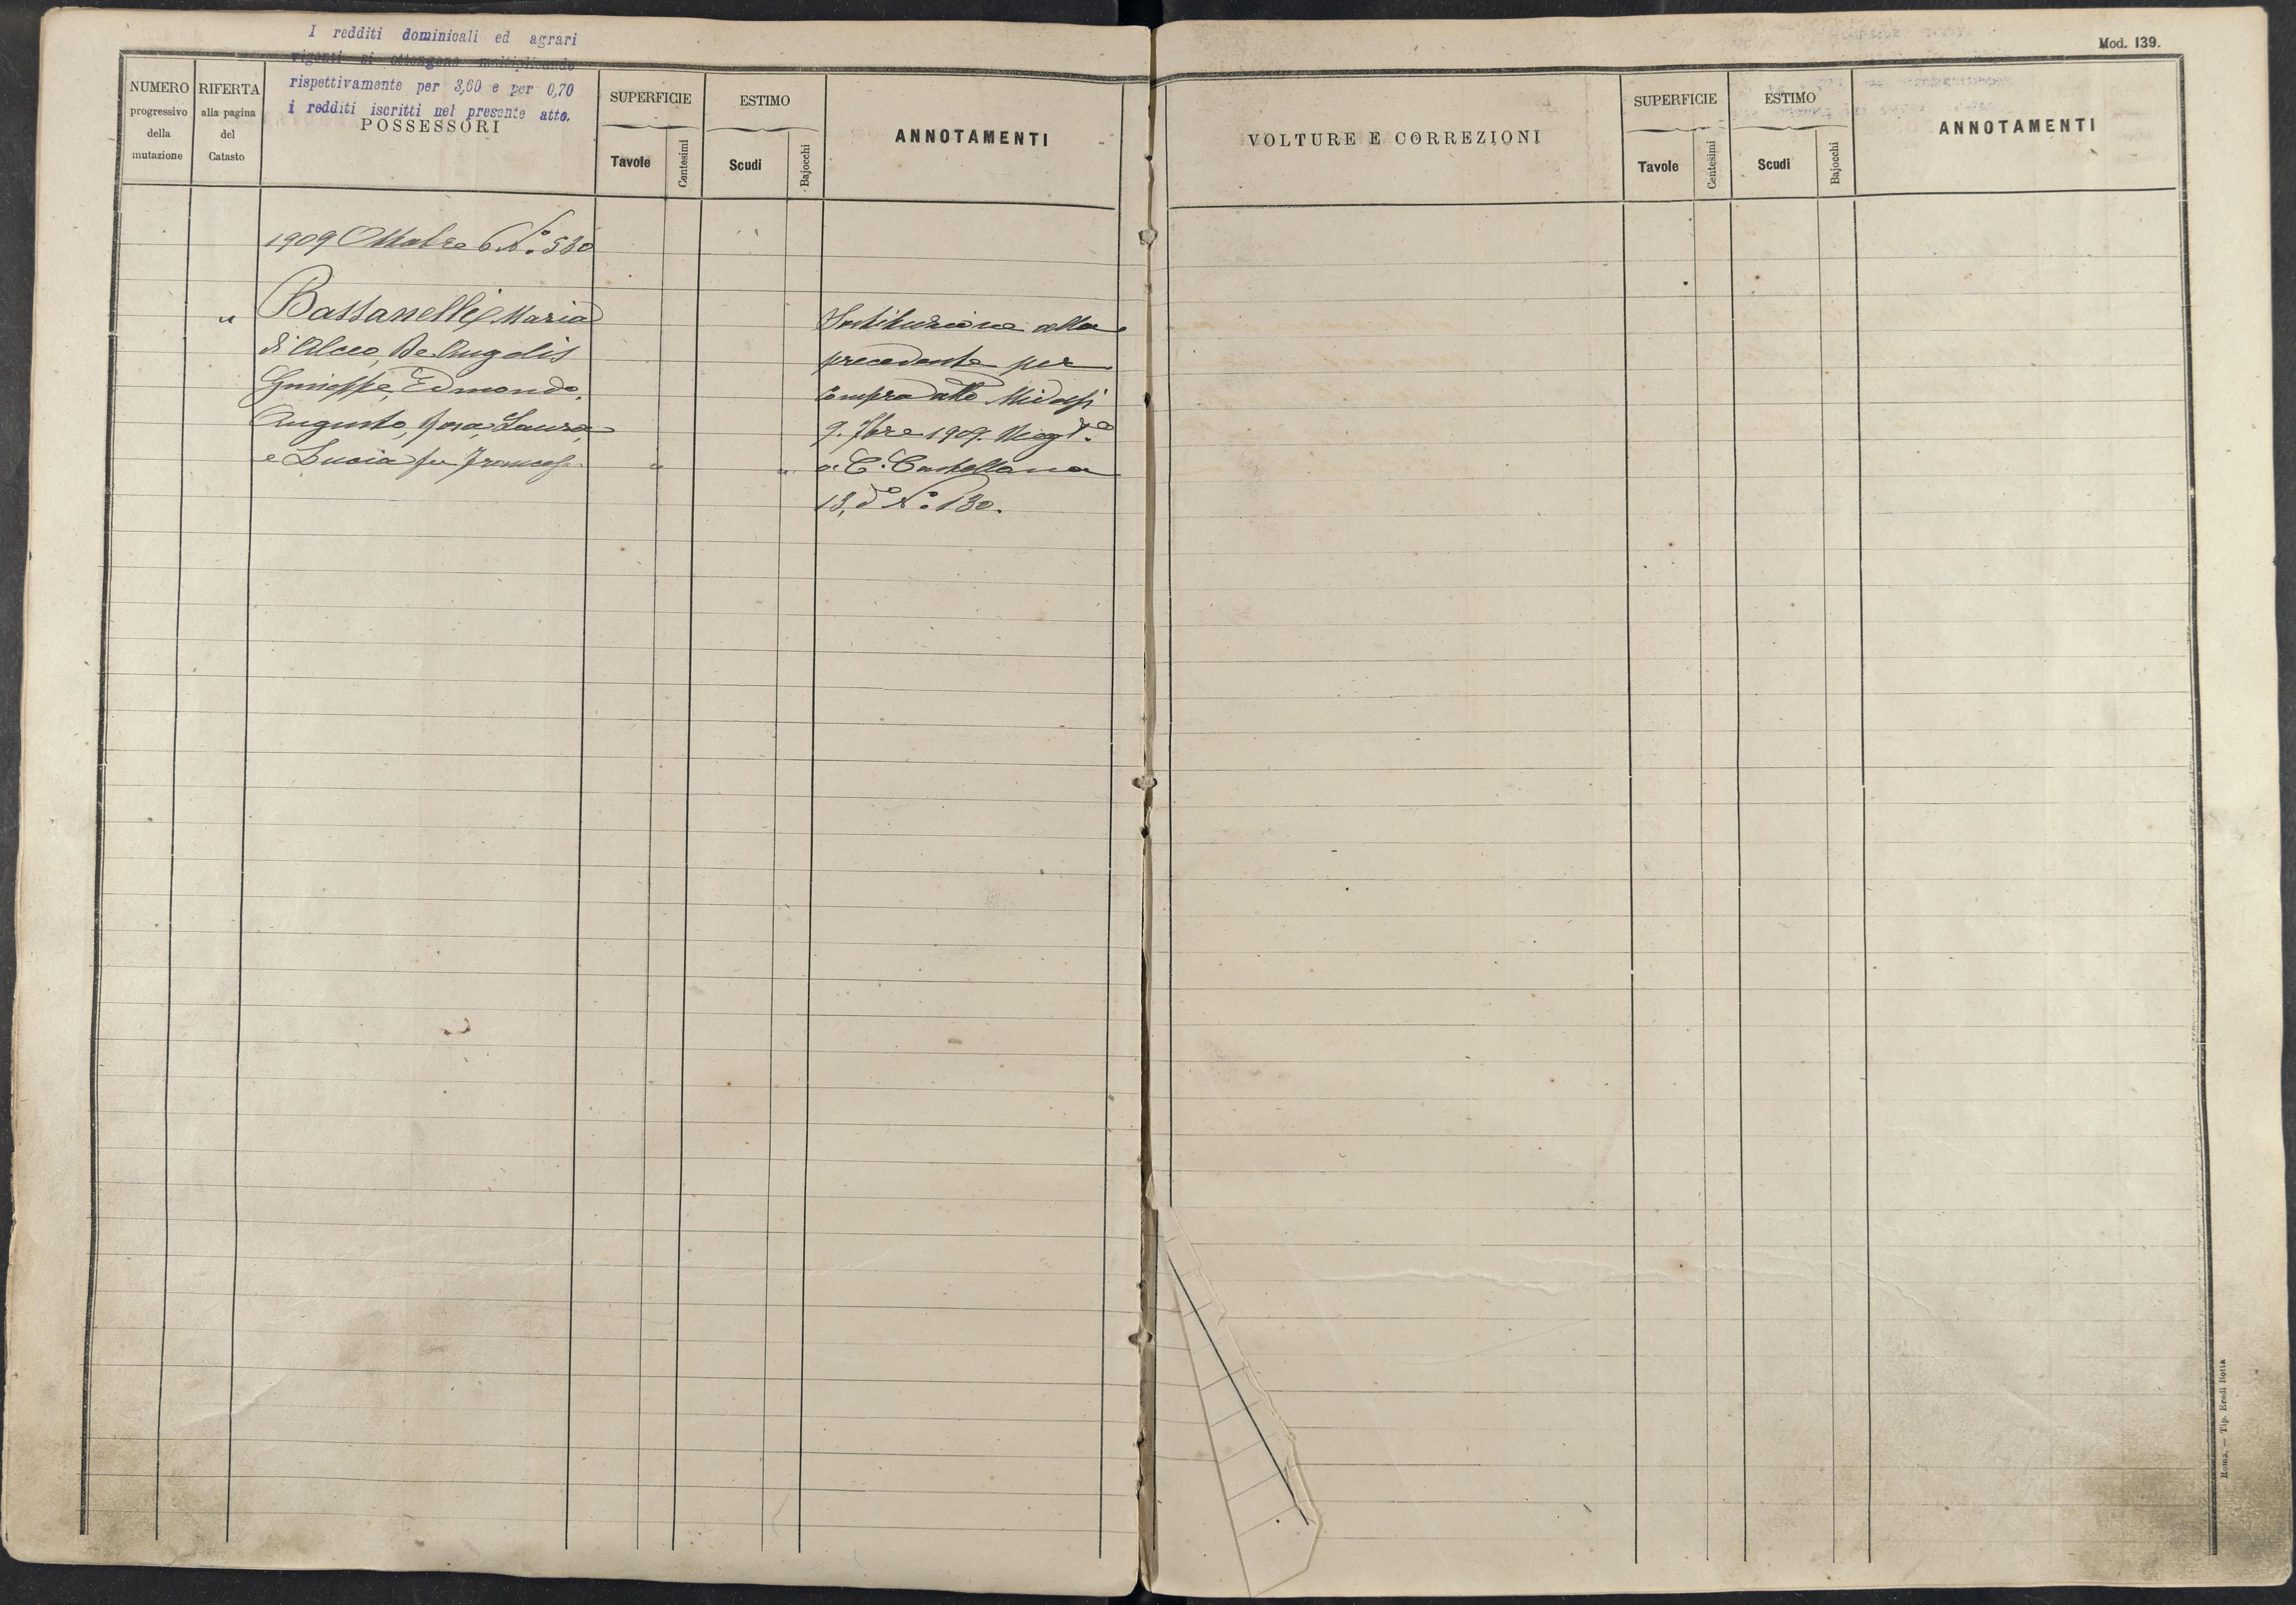 I redditi dominicali ed agrari
vigenti si ottengono moltiplicando
rispettivamente per 3,60 e per 0,70
i redditi iscritti nel presente atto.
NUMERO
progressivo
della
mutazione
RIFERTA
alla pagina
del
Catasto
POSSESSORI
SUPERFICIE
Tavole
Centesimi
ESTIMO
Scudi
Bajocchi
ANNOTAMENTI
1909 Ottobre 6 N.° 530
" Bassanelli Maria
di Alceo, De Angelis
Giuseppe, Edmondo,
Augusto, Rosa, Laura,
e Lucia fu Francesco " "
Sostituzione alla
precedente per
Compra atto Midossi
9. 7bre 1909. Reg.to
a C. Castellana
13, d.° N.° 130.
Mod. 139.
VOLTURE E CORREZIONI
SUPERFICIE
Tavole
Centesimi
ESTIMO
Scudi
Bajocchi
ANNOTAMENTI
Roma. — Tip. Eredi Botta